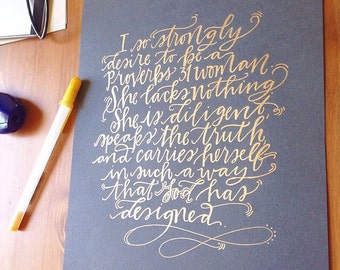 I so strongly
desire to be a
Proverbs 31 woman.
She lacks nothing
She is diligent
speaks the truth
and carries herself
in such a way
that God has
designed.